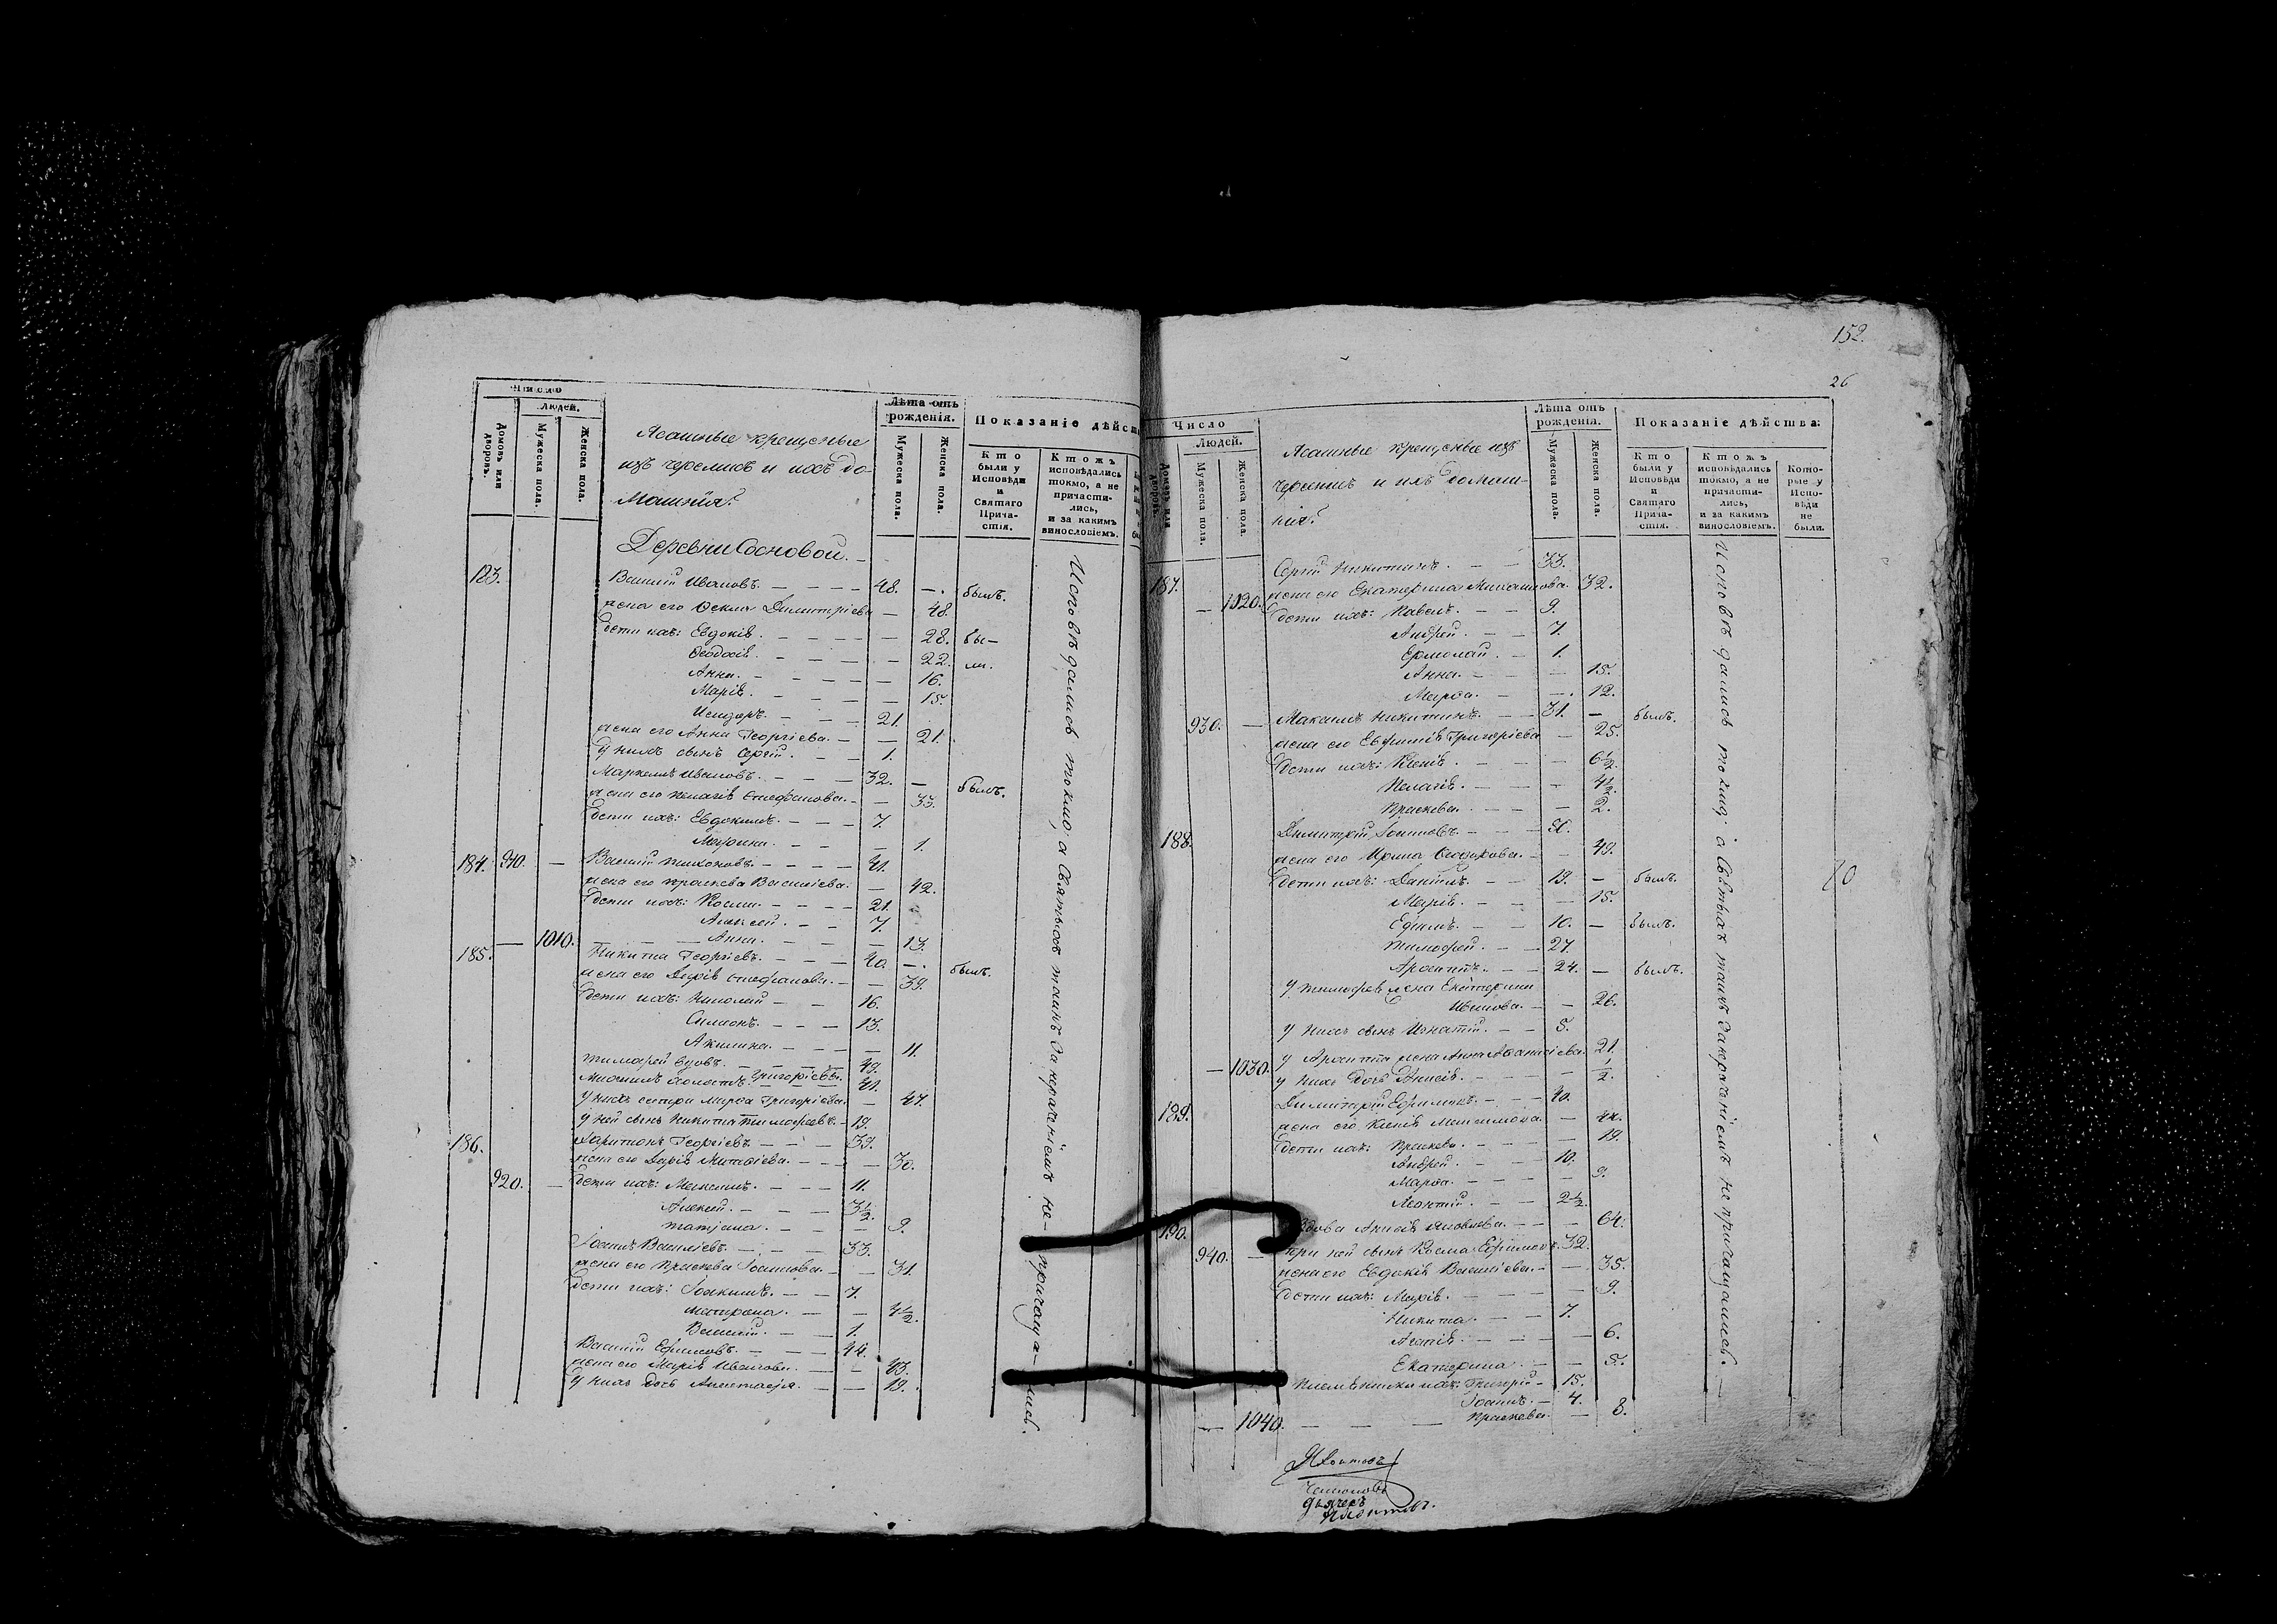 Число
Людей.
Домовъ или дворовъ.
Мужеска пола.
Женска пола.
Ясашные крещеные
изъ черемисъ и ихъ до-
машнія.
Лѣта отъ рожденія.
Мужеска пола.
Женска пола.
Показаніе дѣйств
Кто были у Исповѣди и Святаго Прича-стія.
Ктожъ исповѣдались токмо, а не причасти-лись, и за какимъ винословіемъ.
Деревни Сосновой.
183. Василій Ивановъ. 48. —. былъ.
жена его Фекла Димитріева — 48.
дети ихъ: Евдокія. — 28. бы-
Феодосія. — 22. ли.
Анна. — 16.
Марія. — 15.
Исидоръ. 21.
жена его Анна Георгіева. — 21.
у нихъ сынъ Сергій. 1.
Маркеллъ Ивановъ. 32. — былъ.
жена его Пелагія Стефанова. — 33.
дети ихъ: Евдокимъ. 7.
Марина. — 1.
184. 910. — Василій Тихоновъ. 41.
жена его Праскева Васильева. — 42.
дети ихъ: Косма. 21.
Алексей. 7.
— 1010. Анна. — 13.
185. Никита Георгіевъ. 40. —. былъ.
жена его Дарія Стефанова. — 39.
дети ихъ: Николай 16.
Симионъ. 13.
Акилина. — 11.
Тимофей вдовъ. 49.
Михаилъ холостъ Григорьевы. 41.
у нихъ сестра Марфа Григоріева. — 47.
у ней сынъ Никита Тимофеевъ. 19.
186. Харитонъ Георгіевъ. 39.
жена его Дарія Матвіева. — 30.
920. — дети ихъ: Максимъ. 11.
Алексей. 3 1/2.
Татіана. — 9.
Іоаннъ Василіевъ. 33.
жена его Праскева Іоаннова. — 31.
дети ихъ: Іоакимъ. 7.
Матрона. — 4 1/2.
Василій. 1.
Василій Ефимовъ. 44.
жена его Марія Иванова. — 43.
у нихъ дочь Анастасія. — 19.
Исповѣдались токмо, а Святыхъ таинъ за нераченіемъ не-причащались.
152.
26
Число
Людей.
Домовъ или дворовъ.
Мужеска пола.
Женска пола.
Ясашные крещеные изъ
черемисъ и ихъ домаш-
нія.
Лѣта отъ рожденія.
Мужеска пола.
Женска пола.
Показаніе дѣйства:
Кто были у Исповѣди и Святаго Прича-стія.
Ктожъ исповѣдались токмо, а не причасти-лись, и за какимъ винословіемъ.
Кото-рые у Испо-вѣди не были.
187. Сергій Никитинъ. 33.
— 1020. жена его Екатерина Михайлова. 32.
дети ихъ: Павелъ. 9.
Андрей. 7.
Ермолай. 1.
Анна. — 15.
Марфа. —. 12.
930. — Максимъ Никитинъ. 31. — былъ.
жена его Евфимія Григоріева — 25.
дети ихъ: Ксенія. — 6 1/2.
Пелагія. — 4 1/2.
Праскева. — 2.
188. Димитрій Іоанновъ. 50.
жена его Ирина Феодорова. — 49.
дети ихъ: Даніилъ. 19. — былъ.
Марія. — 15.
Ефимъ. 10. — былъ.
Тимофей. 27.
Арсентій. 24. — былъ.
у Тимофея жена Екатерина
Иванова. — 26.
у нихъ сынъ Игнатій. 5.
у Арсентія жена Анна Афанасіева. 21.
— 1030. у нихъ дочь Анисія. — 1/2.
189. Димитрій Ефимовъ. 40.
жена его Ксенія Максимова. — 44.
дети ихъ: Праскева. — 19.
Андрей. 10.
Марфа. — 9.
Леонтій. 2 1/2.
190. вдова Анисія Яковлева. — 64.
940. — при ней сынъ Косма Ефимовъ. 32.
жена его Евдокія Василіева. — 35.
дети ихъ: Марія. — 9.
Никита. 7.
Агапія. — 6.
Екатерина. — 5.
племянники ихъ: Григорій 15.
Іоаннъ. 4.
— 1040. Праскева. — 8.
Исповѣдались токмо, а Святыхъ таинъ за нераченіемъ не причащались. —